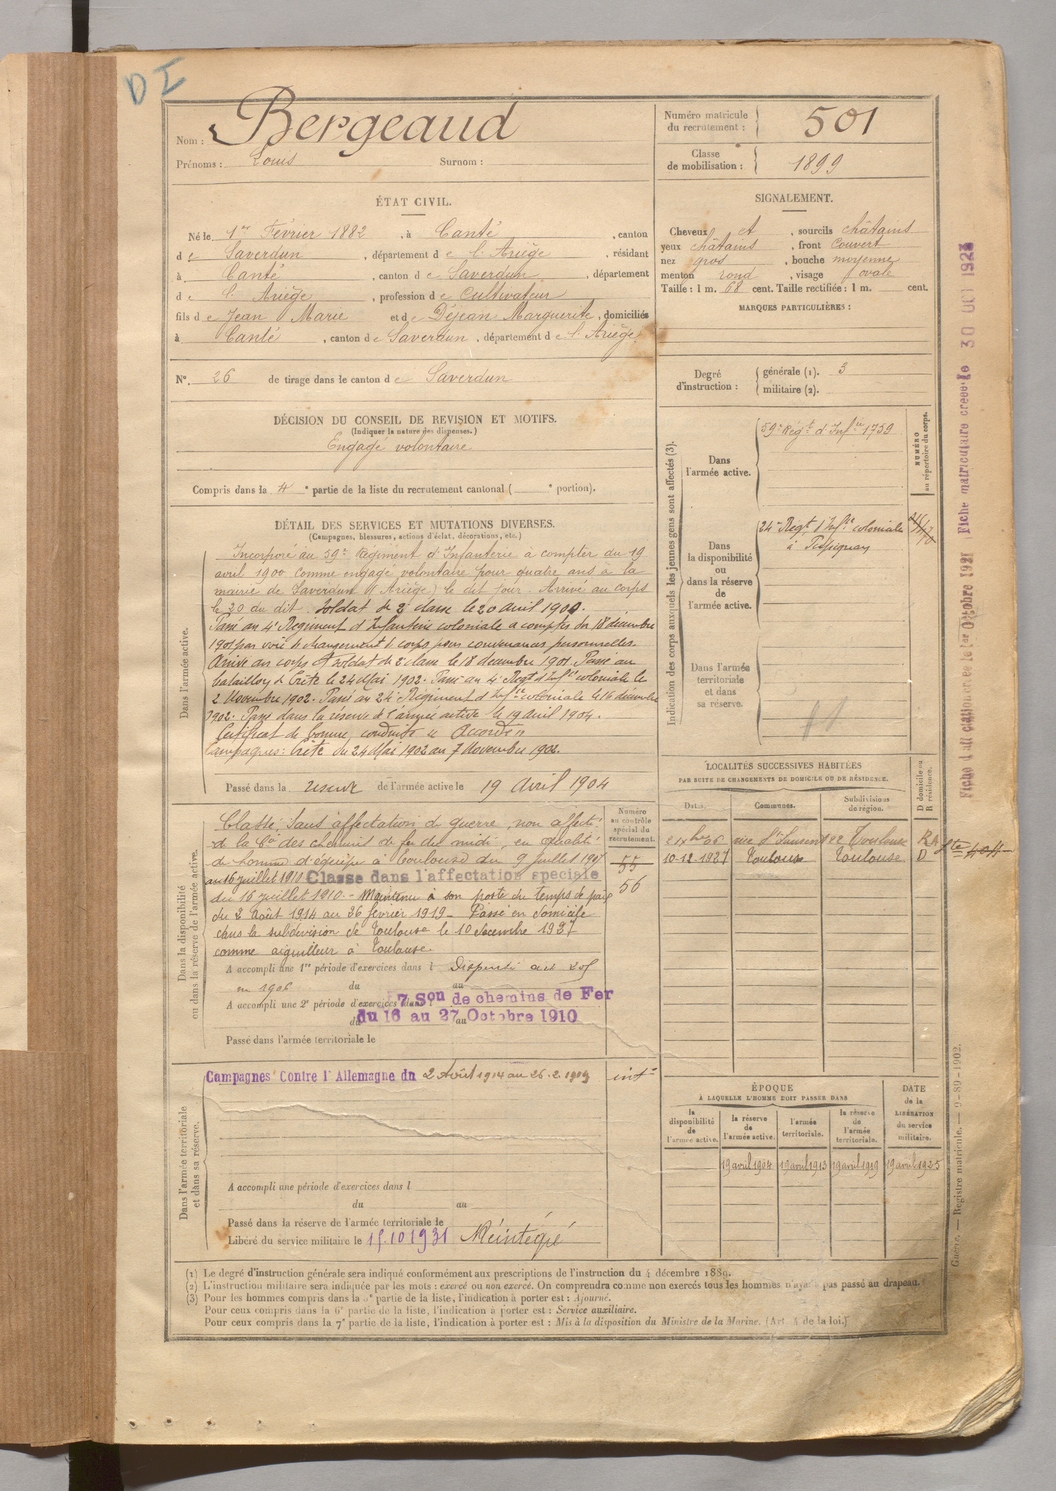 D I
Nom : Bergeaud
Prénoms : Louis Surnom :
Numéro matricule du recrutement : 501
Classe de mobilisation : 1899
ÉTAT CIVIL.
Né le 1er Février 1882, à Canté, canton
de Saverdun, département de l'Ariège, résidant
à Canté, canton de Saverdun, département
de l'Ariège, profession de Cultivateur
fils de Jean Marie et de Déjean Marguerite, domiciliés
à Canté, canton de Saverdun, département de l'Ariège
N° 26 de tirage dans le canton de Saverdun
SIGNALEMENT.
Cheveux et, sourcils châtains
yeux châtains, front couvert
nez gros, bouche moyenne
menton rond, visage ovale
Taille : 1 m. 68 cent. Taille rectifiée : 1 m. cent.
MARQUES PARTICULIÈRES :
Degré d'instruction : générale (1). 3
militaire (2).
DÉCISION DU CONSEIL DE REVISION ET MOTIFS.
(Indiquer la nature des dispenses.)
Engagé volontaire
Compris dans la 4e partie de la liste du recrutement cantonal ( e portion).
DÉTAIL DES SERVICES ET MUTATIONS DIVERSES.
(Campagnes, blessures, actions d'éclat, décorations, etc.)
Dans l'armée active.
Incorporé au 59e Régiment d'Infanterie à compter du 19
avril 1900 comme engagé volontaire pour quatre ans à la
mairie de Saverdun (Ariège) le dit jour. Arrivé au corps
le 20 du dit. Soldat de 2e classe le 20 avril 1900.
Passé au 4e Régiment d'Infanterie coloniale à compter du 18 décembre
1901 par voie de changement de corps pour convenances personnelles.
Arrivé au corps et soldat de 2e classe le 18 décembre 1901. Passé au
bataillon de Crète le 24 Mai 1902. Passé au 4e Régt d'Infie coloniale le
2 Novembre 1902. Passé au 24e Régiment d'Infie coloniale le 16 décembre
1902. Passé dans la réserve de l'armée active le 19 avril 1904.
Certificat de bonne conduite « Accordé »
Campagnes : Crète du 24 Mai 1902 au 7 Novembre 1902.
Passé dans la réserve de l'armée active le 19 Avril 1904
Indication des corps auxquels les jeunes gens sont affectés (3).
Dans l'armée active.
59e Régt d'Infie 1759
NUMÉRO au répertoire du corps.
Dans la disponibilité ou dans la réserve de l'armée active.
24e Régt d'Infie coloniale
à Perpignan
Dans l'armée territoriale et dans sa réserve.
LOCALITÉS SUCCESSIVES HABITÉES
PAR SUITE DE CHANGEMENTS DE DOMICILE OU DE RÉSIDENCE.
Dates. Communes. Subdivisions de région. D domicile ou R résidence.
Toulouse
10-12-1927 Toulouse Toulouse D
Dans la disponibilité ou dans la réserve de l'armée active.
Numéro au contrôle spécial du recrutement.
55
56
Classé, Sans affectation de guerre, non affecté
de la Cie des chemins de fer du midi, en qualité
de homme d'équipe à Toulouse du 9 juillet 1907
au 16 juillet 1910 Classé dans l'affectation spéciale
du 16 juillet 1910. - Maintenu à son poste du temps de paix
du 2 Août 1914 au 26 février 1919 - Passé en domicile
dans la subdivision de Toulouse le 10 décembre 1927
comme aiguilleur à Toulouse.
A accompli une 1re période d'exercices dans l
en 1906 du au
A accompli une 2e période d'exercices dans 7 Son de chemins de Fer
du 16 au 27 Octobre 1910
Passé dans l'armée territoriale le
Dans l'armée territoriale et dans sa réserve.
Campagnes Contre l'Allemagne du 2 Août 1914 au 26.2.1919
A accompli une période d'exercices dans l
du au
Passé dans la réserve de l'armée territoriale le
Libéré du service militaire le 15.10.1931 Réintégré
ÉPOQUE
À LAQUELLE L'HOMME DOIT PASSER DANS
la disponibilité de l'armée active. la réserve de l'armée active. l'armée territoriale. la réserve de l'armée territoriale. DATE de la LIBÉRATION du service militaire.
19 avril 1904 19 avril 1913 19 avril 1919 19 avril 1925
(1) Le degré d'instruction générale sera indiqué conformément aux prescriptions de l'instruction du 4 décembre 1889.
(2) L'instruction militaire sera indiquée par les mots : exercé ou non exercé. On comprendra comme non exercés tous les hommes n'ayant pas passé au drapeau.
(3) Pour les hommes compris dans la 5e partie de la liste, l'indication à porter est : Ajourné.
Pour ceux compris dans la 6e partie de la liste, l'indication à porter est : Service auxiliaire.
Pour ceux compris dans la 7e partie de la liste, l'indication à porter est : Mis à la disposition du Ministre de la Marine. (Art. 4 de la loi.)
Guerre. — Registre matricule. — 9-89-1902.